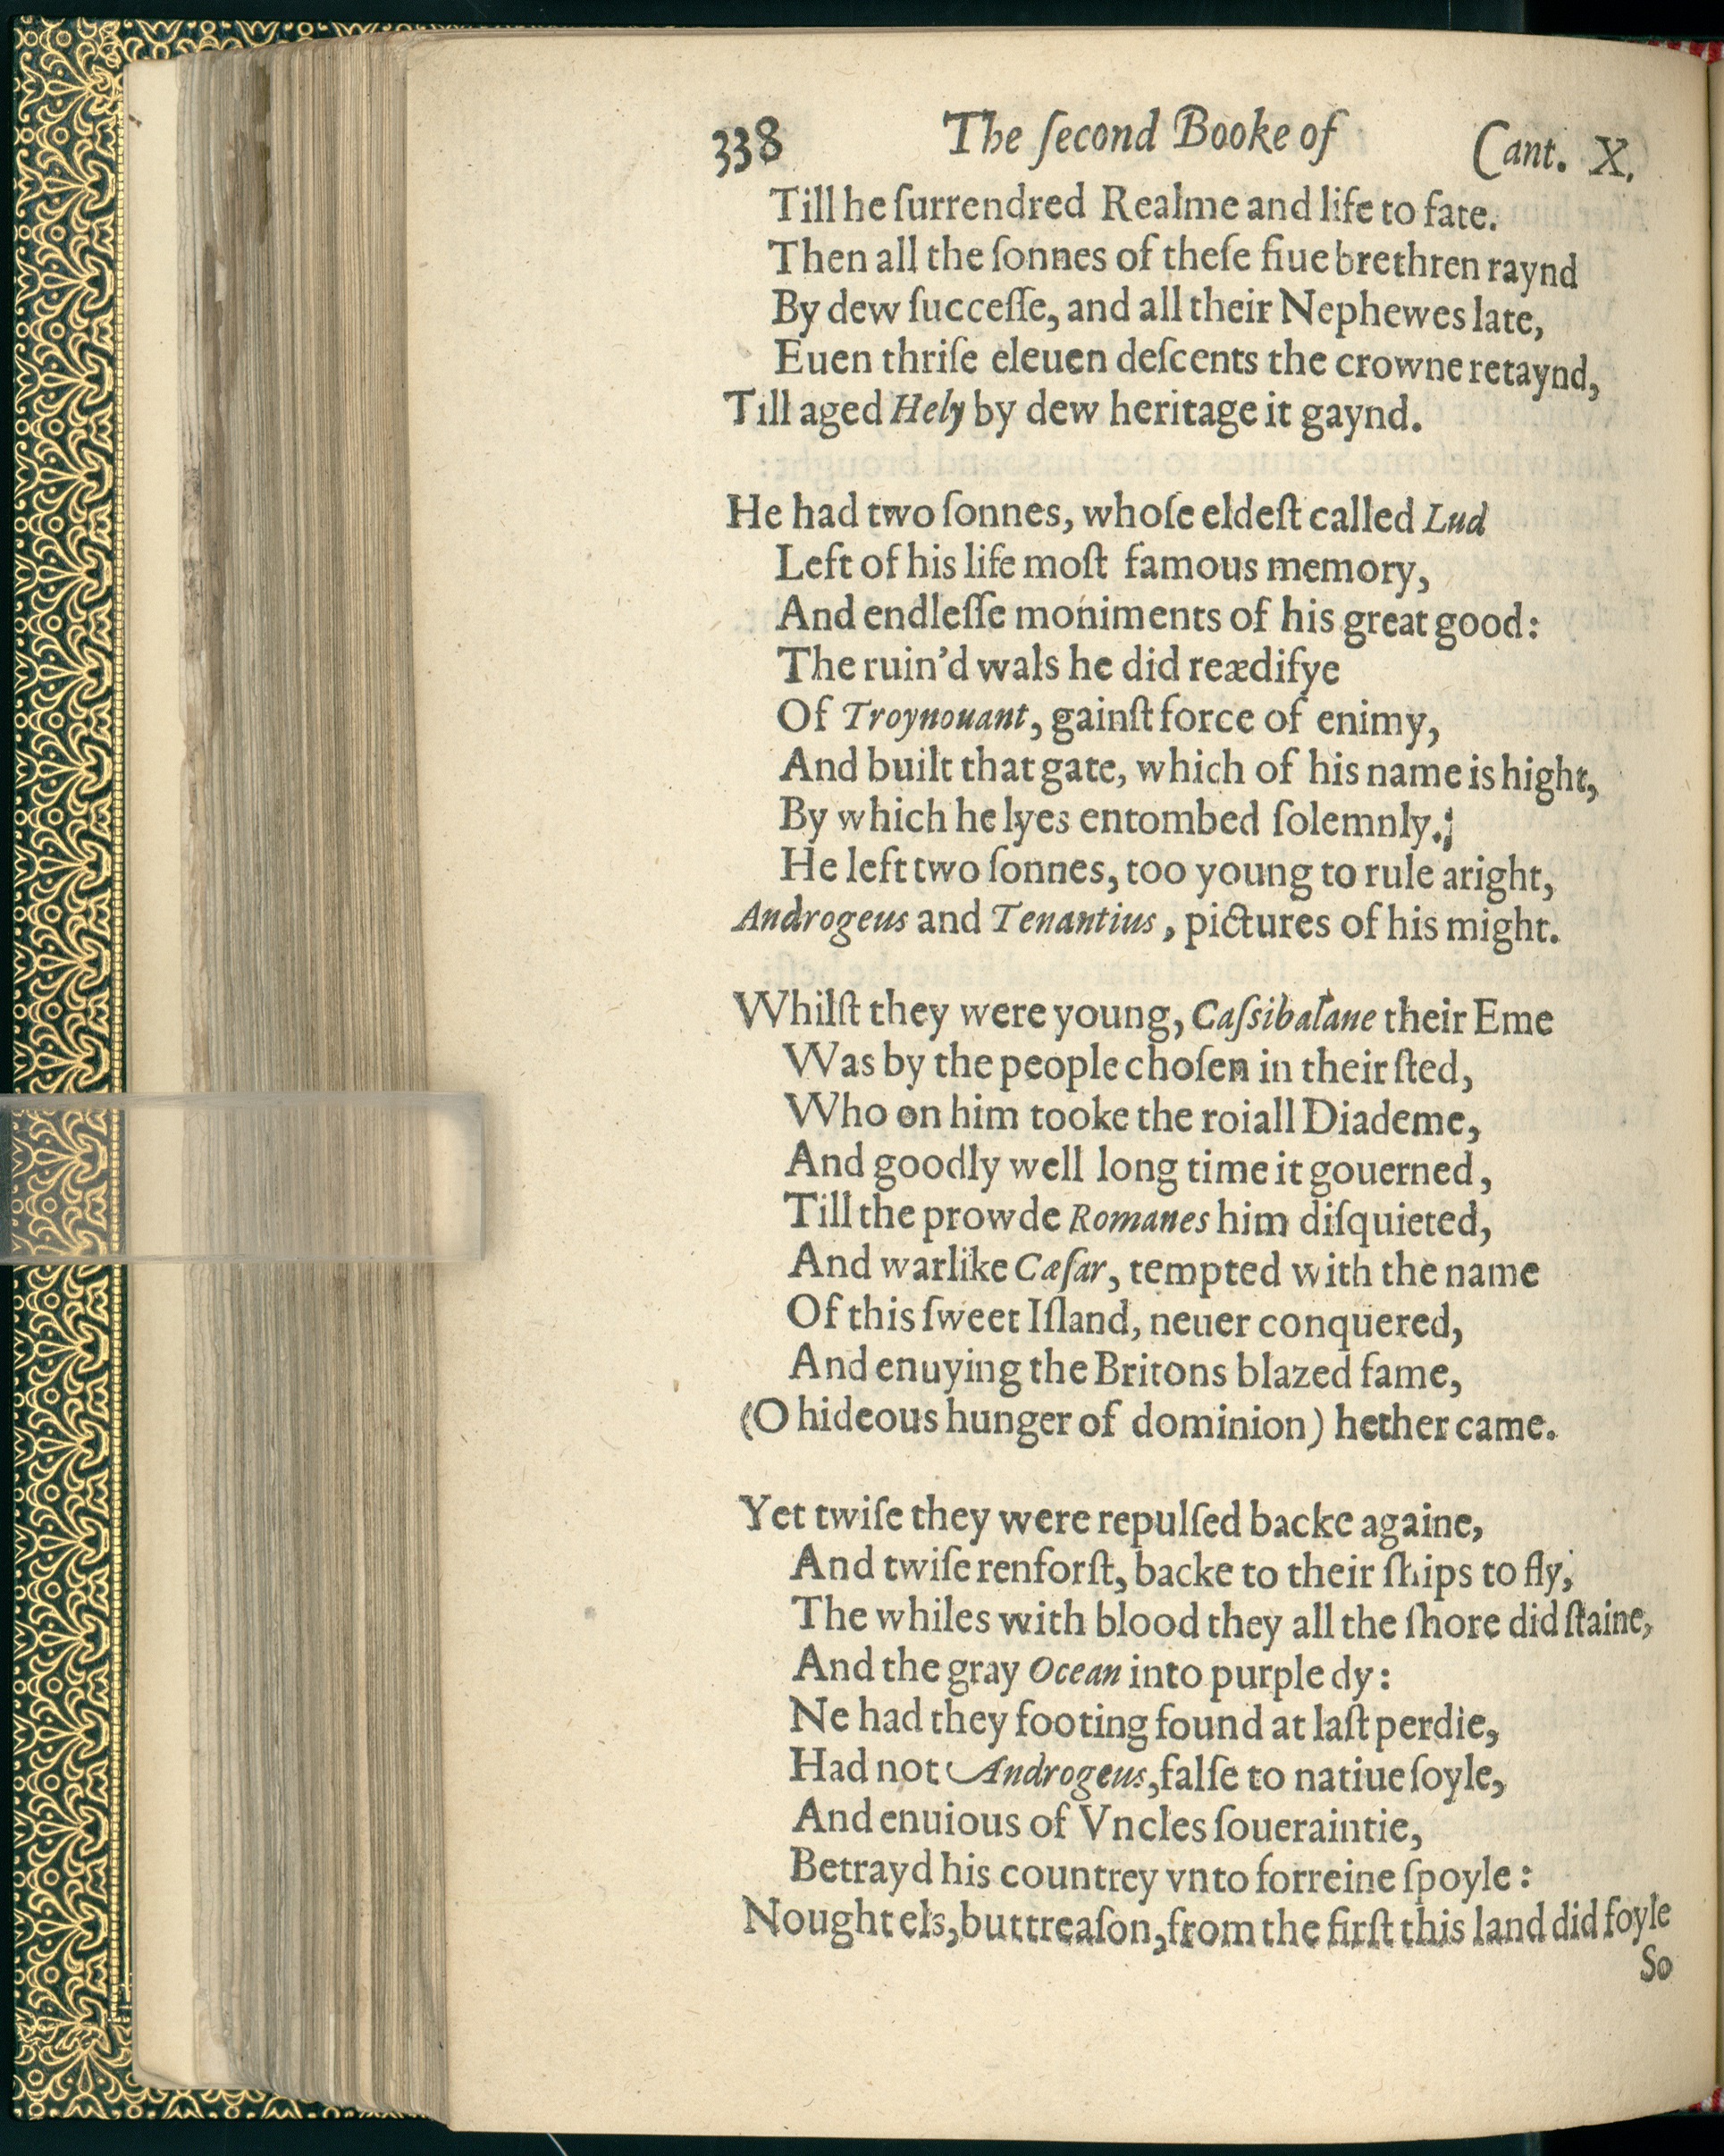 338 The ſecond Booke of Cant. X.
Till he ſurrendred Realme and life to fate.
Then all the ſonnes of theſe fiue brethren raynd
By dew ſucceſſe, and all their Nephewes late,
Euen thriſe eleuen deſcents the crowne retaynd,
Till aged Hely by dew heritage it gaynd.
He had two ſonnes, whoſe eldeſt called Lud
Left of his life moſt famous memory,
And endleſſe moniments of his great good:
The ruin'd wals he did reædifye
Of Troynouant, gainſt force of enimy,
And built that gate, which of his name is hight,
By which he lyes entombed ſolemnly.;
He left two ſonnes, too young to rule aright,
Androgeus and Tenantius, pictures of his might.
Whilſt they were young, Caſsibalane their Eme
Was by the people choſen in their ſted,
Who on him tooke the roiall Diademe,
And goodly well long time it gouerned,
Till the prowde Romanes him diſquieted,
And warlike Cæſar, tempted with the name
Of this ſweet Iſland, neuer conquered,
And enuying the Britons blazed fame,
(O hideous hunger of dominion) hether came.
Yet twiſe they were repulſed backe againe,
And twiſe renforſt, backe to their ſhips to fly,
The whiles with blood they all the ſhore did ſtaine,
And the gray Ocean into purple dy:
Ne had they footing found at laſt perdie,
Had not Androgeus, falſe to natiue ſoyle,
And enuious of Vncles ſoueraintie,
Betrayd his countrey vnto forreine ſpoyle:
Nought els, but treaſon, from the firſt this land did foyle
So